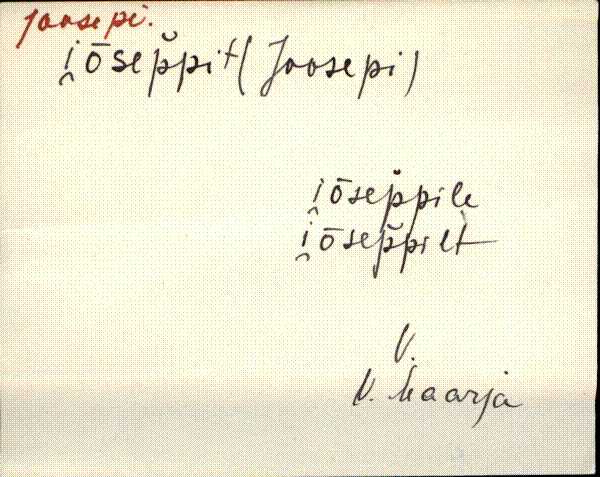 Joosepi.
i̯ōsep̆pit (Joosepi)
i̯ōsep̆pile
i̯ōsep̆pilt
V.
V. Maarja